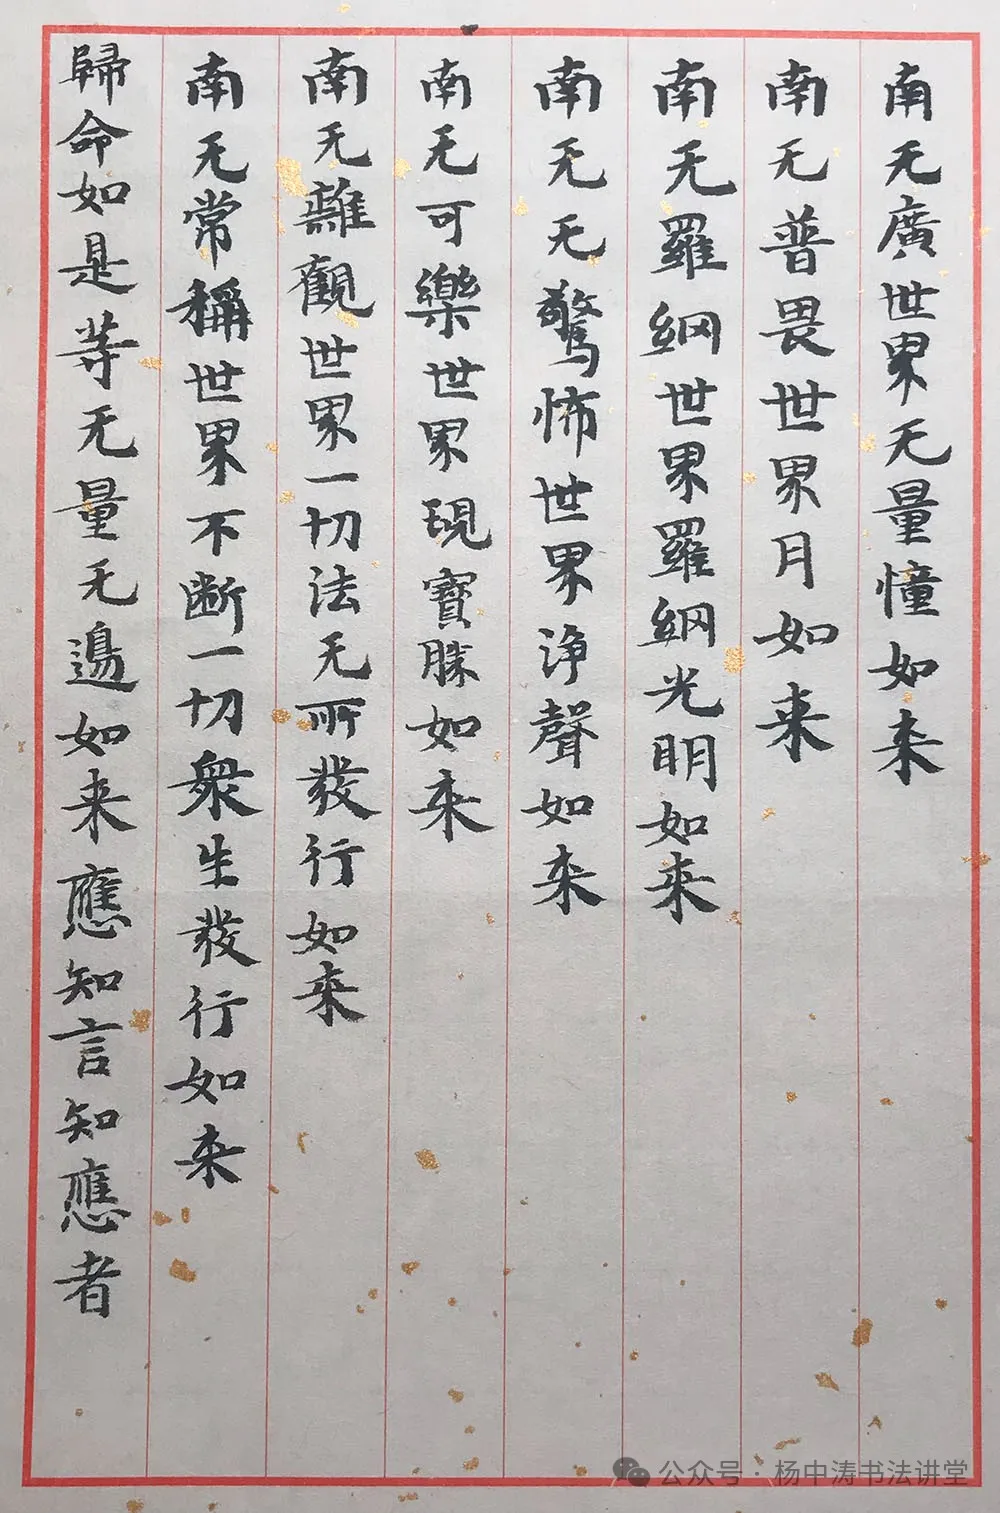 南无廣世界无量憧如来
南无普畏世界月如来
南无羅網世界羅網光明如来
南无无驚怖世界淨聲如来
南无可樂世界現寶勝如来
南无離觀世界一切法无所發行如来
南无常稱世界不断一切衆生發行如来
歸命如是等无量无邊如来應知言知應者
公众号 · 杨中涛书法讲堂